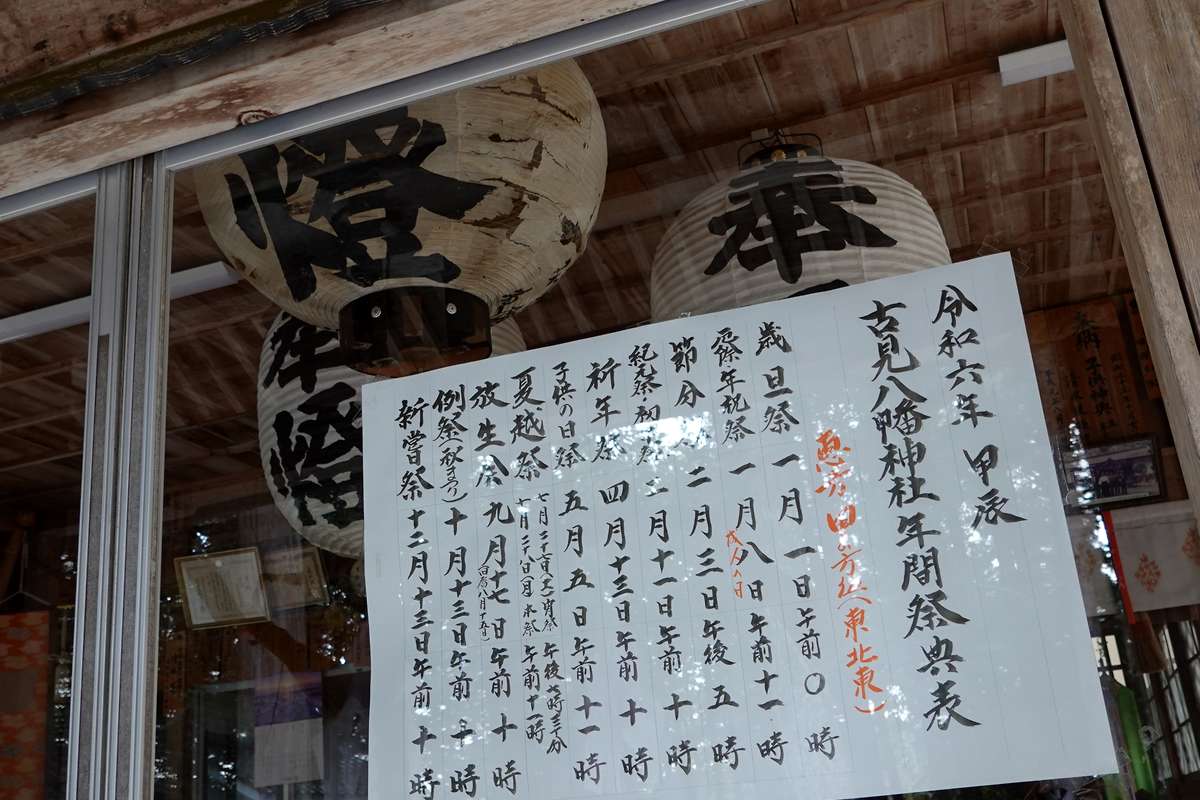 令和六年 甲辰
古見八幡神社年間祭典表
恵方 甲の方位(東北東)
歳旦祭 一月一日午前〇時
厄除年祝祭 一月八日午前十一時
成人の日
節分祭 二月三日午後五時
紀元祭・初午祭 二月十一日午前十時
祈年祭 四月十三日午前十時
子供の日祭 五月五日午前十一時
夏越祭 七月 午後七時三十分
午前十一時
放生会 九月十七日午前十時
旧暦八月十五日
例祭(秋まつり) 十月十三日午前十時
新嘗祭 十二月十三日午前十時
燈
奉
奉燈